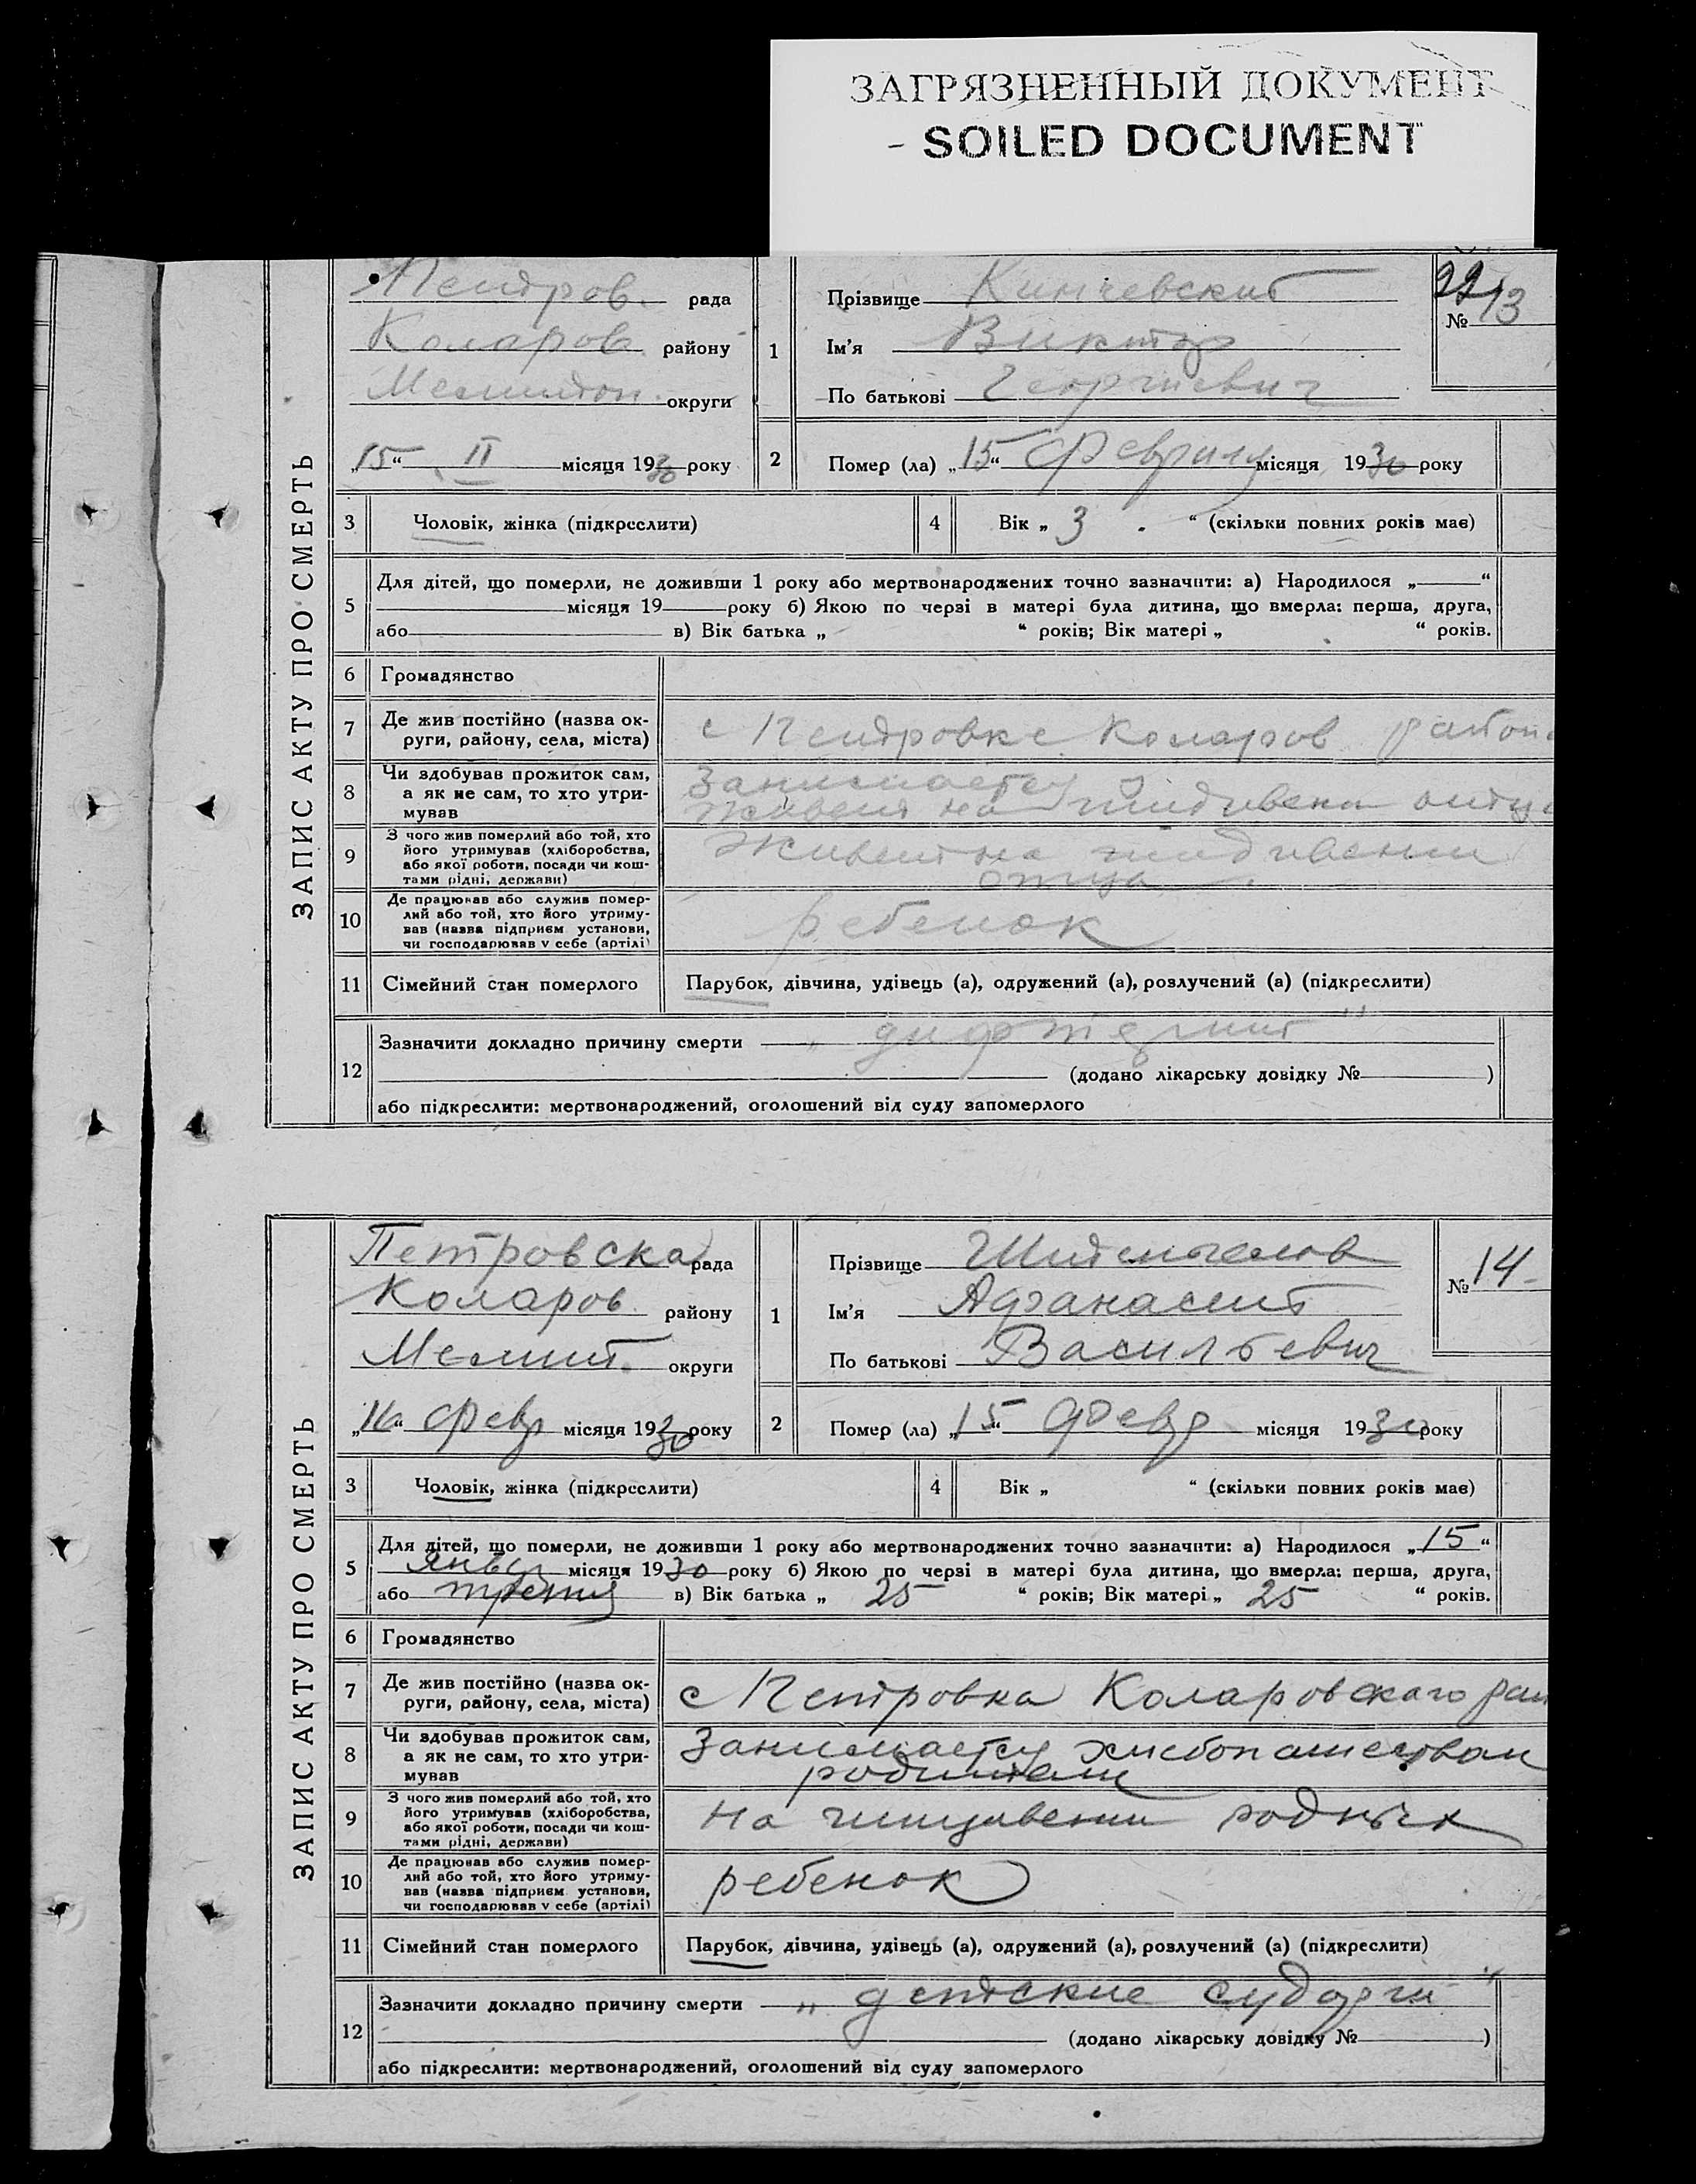 ЗАГРЯЗНЕННЫЙ ДОКУМЕНТ
- SOILED DOCUMENT
ЗАПИС АКТУ ПРО СМЕРТЬ
Петров. рада
Коларов. району
Мелитоп. округи
„15“ II місяця 1930 року
1
Прізвище Кинчевский
Ім’я Виктор
По батькові Георгиевич
№ 13
2 Помер (ла) „15“ Февраля місяця 1930 року
3 Чоловік, жінка (підкреслити)
4 Вік „ 3 “ (скільки повних років має)
5 Для дітей, що померли, не доживши 1 року або мертвонароджених точно зазначити: а) Народилося „ “
місяця 19 року б) Якою по черзі в матері була дитина, що вмерла: перша, друга,
або в) Вік батька „ “ років; Вік матері „ “ років.
6 Громадянство
7 Де жив постійно (назва ок-
руги, району, села, міста)
с Петровке Коларов район
8 Чи здобував прожиток сам,
а як не сам, то хто утри-
мував
Занимается
живет на отца
9 З чого жив померлий або той, хто
його утримував (хліборобства,
або якої роботи, посади чи кош-
тами рідні, держави)
Живет на иждивении
отца
10 Де працював або служив помер-
лий або той, хто його утриму-
вав (назва підприєм установи,
чи господарював у себе (артілі)
ребенок
11 Сімейний стан померлого
Парубок, дівчина, удівець (а), одружений (а), розлучений (а) (підкреслити)
12 Зазначити докладно причину смерти „ дифтерит “
(додано лікарську довідку № )
або підкреслити: мертвонароджений, оголошений від суду запомерлого
ЗАПИС АКТУ ПРО СМЕРТЬ
Петровска рада
Коларов. району
Мелит. округи
„16“ Февр місяця 1930 року
1
Прізвище
Ім’я Афанасий
По батькові Васильевич
№ 14
2 Помер (ла) „15“ Февр місяця 1930 року
3 Чоловік, жінка (підкреслити)
4 Вік „ “ (скільки повних років має)
5 Для дітей, що померли, не доживши 1 року або мертвонароджених точно зазначити: а) Народилося „15“
январ місяця 1930 року б) Якою по черзі в матері була дитина, що вмерла: перша, друга,
або третия в) Вік батька „ 25 “ років; Вік матері „ 25 “ років.
6 Громадянство
7 Де жив постійно (назва ок-
руги, району, села, міста)
с Петровка Коларовского рай
8 Чи здобував прожиток сам,
а як не сам, то хто утри-
мував
Занимается хлебопашеством
родители
9 З чого жив померлий або той, хто
його утримував (хліборобства,
або якої роботи, посади чи кош-
тами рідні, держави)
на родных
10 Де працював або служив помер-
лий або той, хто його утриму-
вав (назва підприєм установи,
чи господарював у себе (артілі)
ребенок
11 Сімейний стан померлого
Парубок, дівчина, удівець (а), одружений (а), розлучений (а) (підкреслити)
12 Зазначити докладно причину смерти „ детские судорги “
(додано лікарську довідку № )
або підкреслити: мертвонароджений, оголошений від суду запомерлого